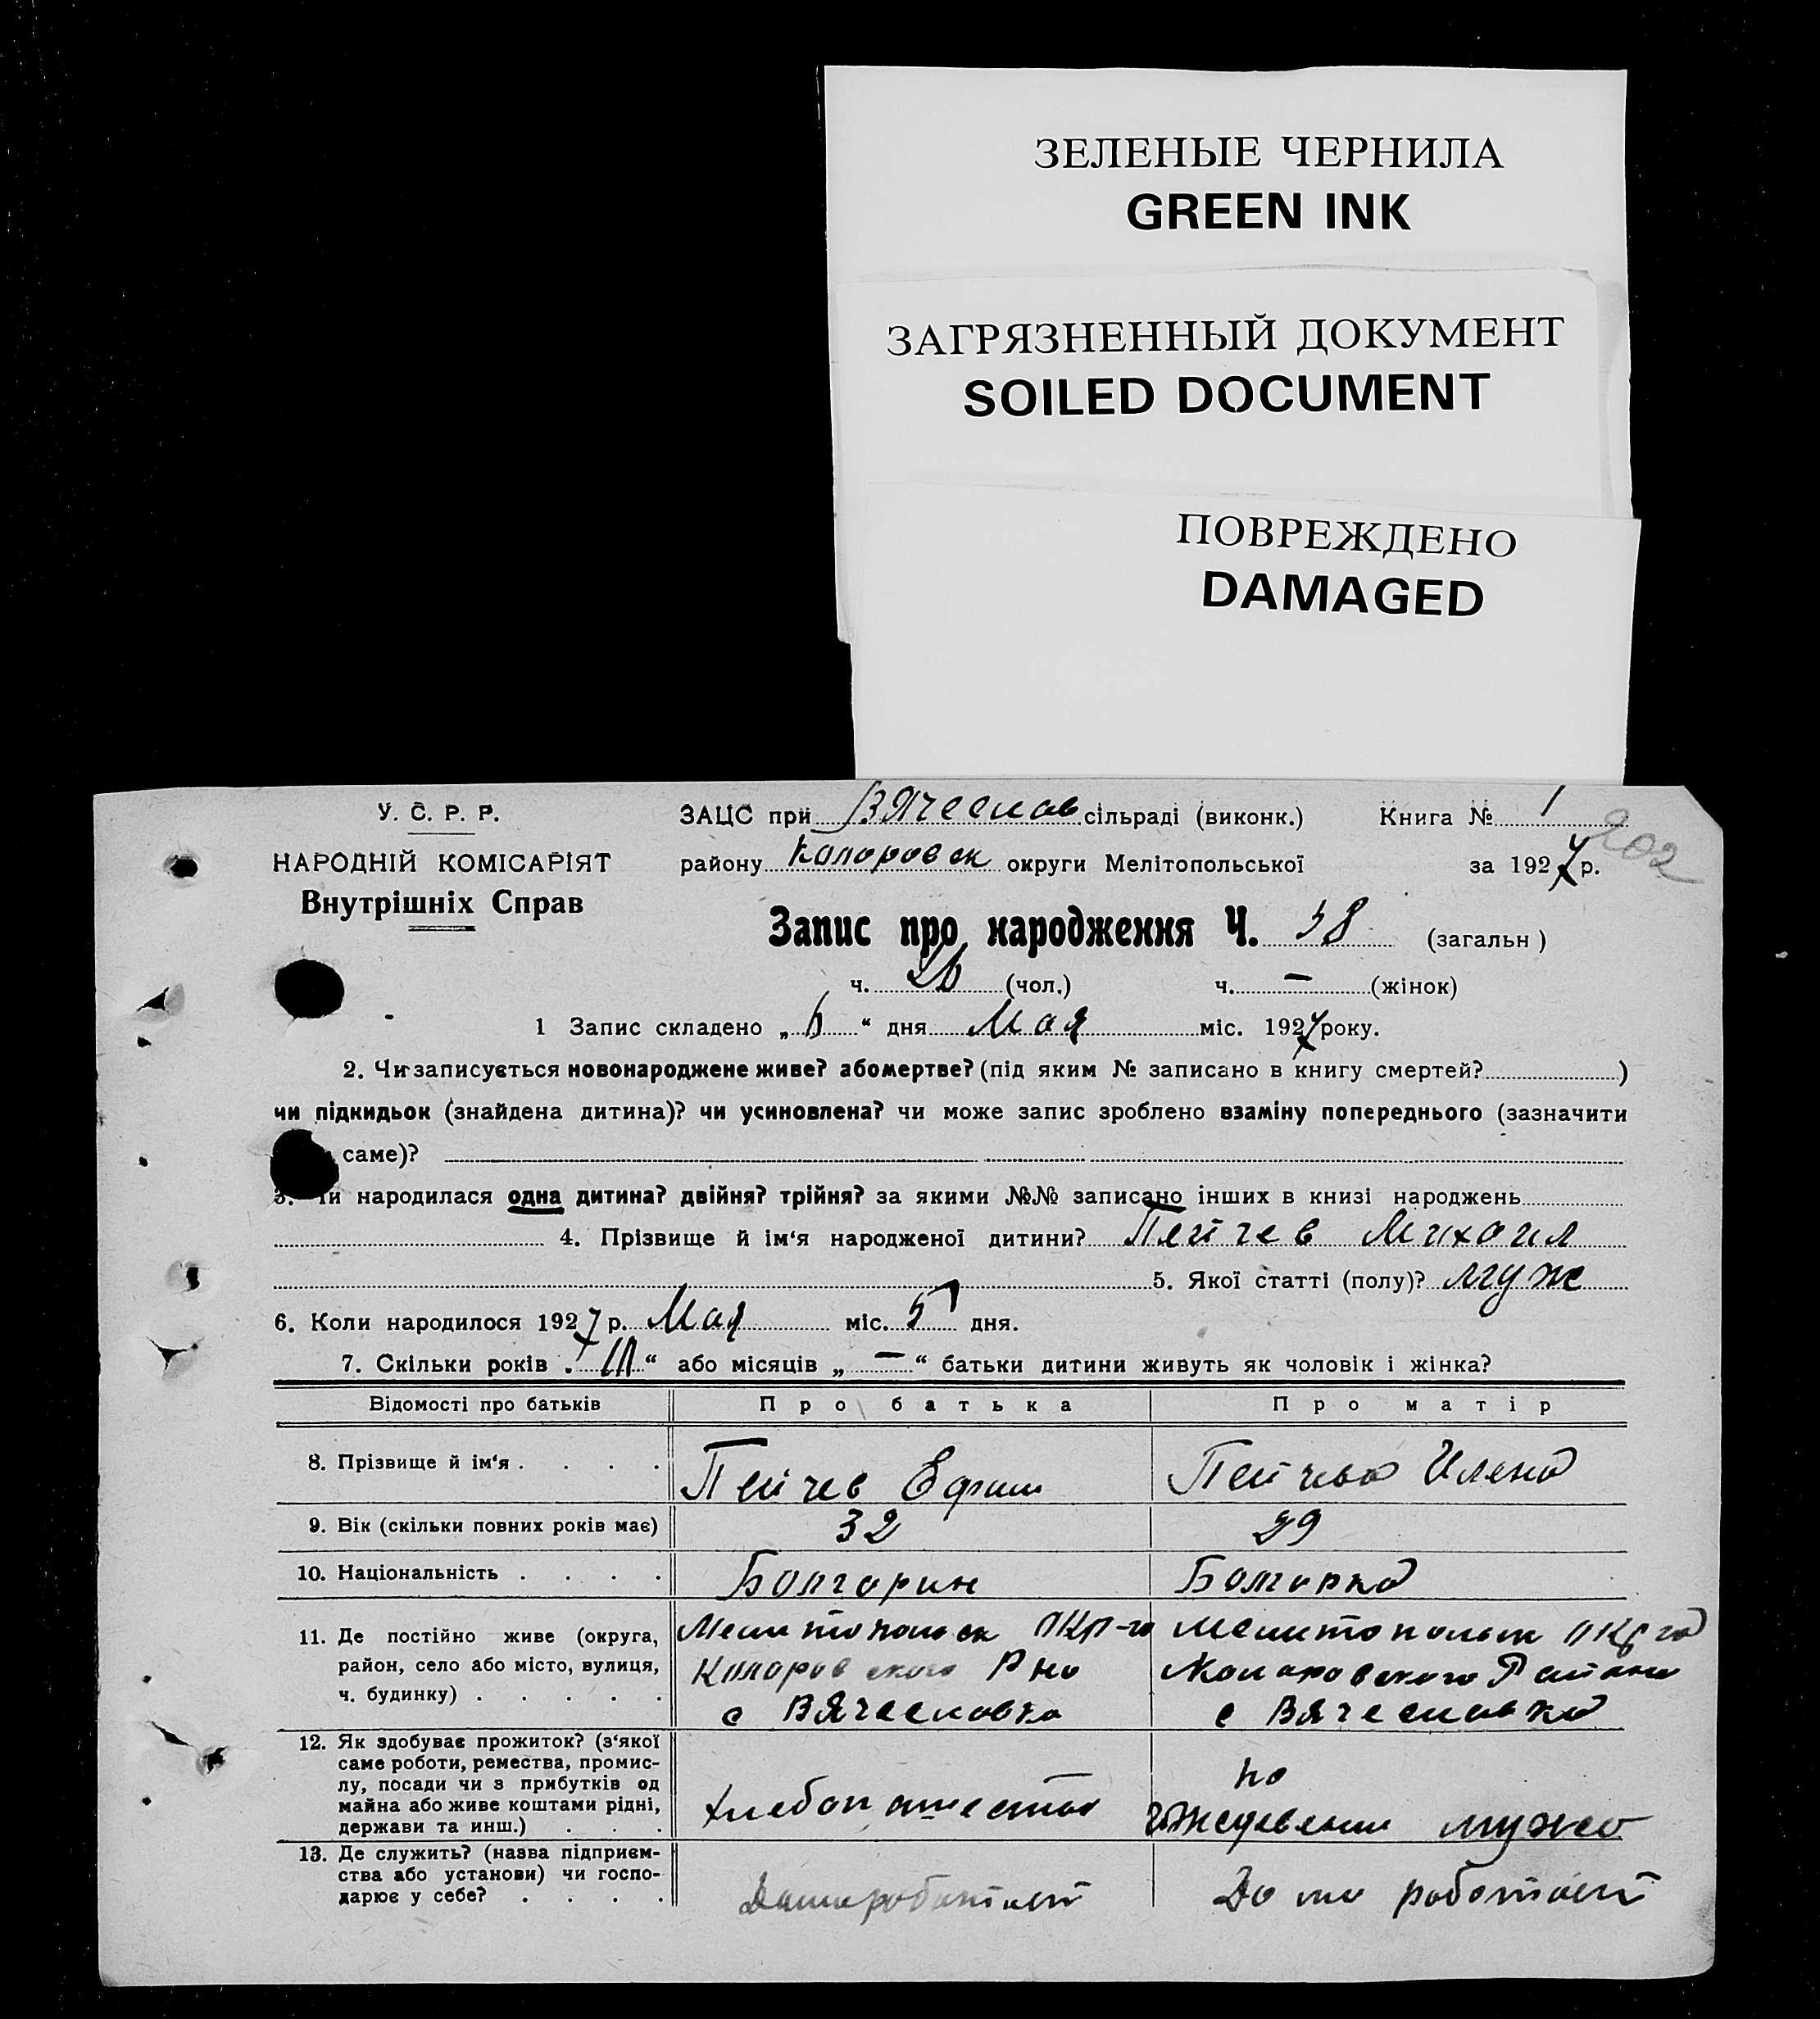 ЗЕЛЕНЫЕ ЧЕРНИЛА
GREEN INK
ЗАГРЯЗНЕННЫЙ ДОКУМЕНТ
SOILED DOCUMENT
ПОВРЕЖДЕНО
DAMAGED
У. С. Р. Р.
НАРОДНІЙ КОМІСАРІЯТ
Внутрішніх Справ
ЗАЦС при Вячеслов сільраді (виконк.) Книга № 1
202
району Коларовск округи Мелітопольської за 1927 р.
Запис про народження Ч. 38 (загальн)
ч. (чол.) ч. – (жінок)
1 Запис складено „ “ дня Мая міс. 1927 року.
2. Чи записується новонароджене живе? або мертве? (під яким № записано в книгу смертей? )
чи підкидьок (знайдена дитина)? чи усиновлена? чи може запис зроблено взаміну попереднього (зазначити
саме)?
3. Чи народилася одна дитина? двійня? трійня? за якими №№ записано інших в книзі народжень
4. Прізвище й ім‘я народженої дитини? Пейчев Михаил
5. Якої статті (полу)? муж
6. Коли народилося 1927 р. Мая міс. 5 дня.
7. Скільки років „ “ або місяців „ – “ батьки дитини живуть як чоловік і жінка?
Відомості про батьків Про батька Про матір
8. Прізвище й ім‘я . . . . Пейчев Ефим Пейчева Илена
9. Вік (скільки повних років має) 32 29
10. Національність . . . . Болгарин Болгарка
11. Де постійно живе (округа, район, село або місто, вулиця, ч. будинку) . . . . .
Мелитопольск окр-га
Коларовского Р на
с Вячесловка
Мелитопольск окр га
Коларовского Района
с Вячесловка
12. Як здобуває прожиток? (з‘якої
саме роботи, ремества, промис-
лу, посади чи з прибутків од
майна або живе коштами рідні,
держави та инш.) . . .
хлебопашество
по
иждевении мужа
13. Де служить? (назва підприєм-
ства або установи) чи госпо-
дарює у себе? . . . .
Дома работает
Дома работает